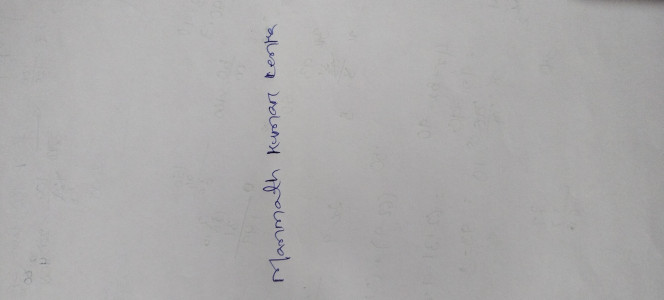 Manmath Kumar Lenka